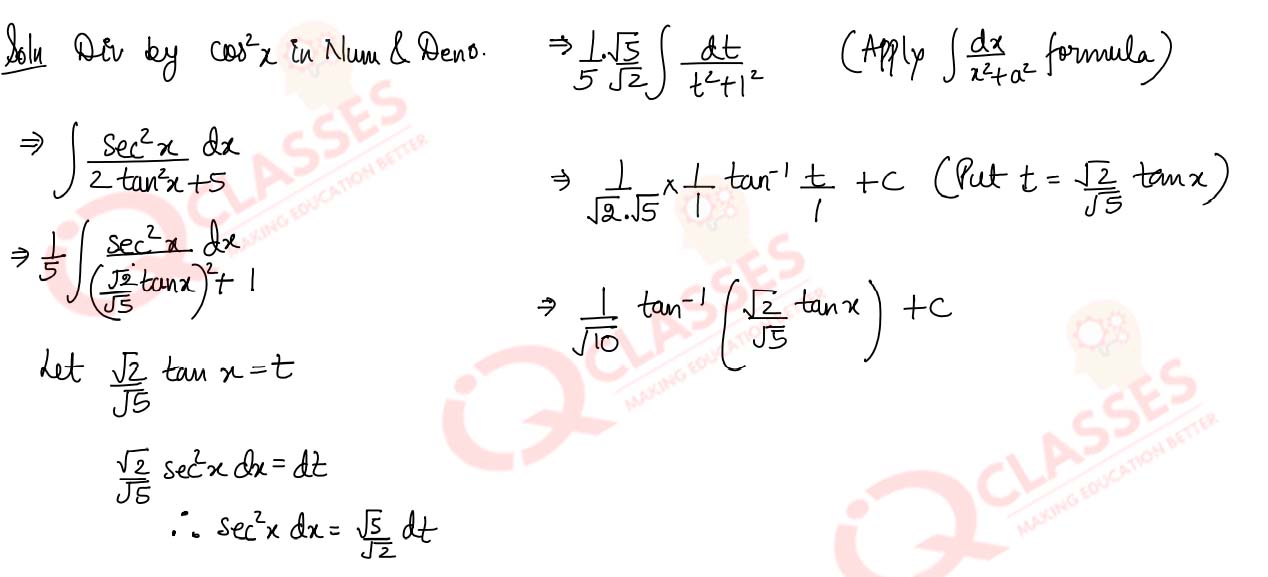 Soln Div by cos²x in Num & Deno.
⇒ ∫ sec²x dx / 2 tan²x + 5
⇒ 1/5 ∫ sec²x dx / (√2/√5 tanx)² + 1
Let √2/√5 tan x = t
√2/√5 sec²x dx = dt
∴ sec²x dx = √5/√2 dt
⇒ 1/5 · √5/√2 ∫ dt / t² + 1² (Apply ∫ dx / x² + a² formula)
⇒ 1/√2.√5 × 1/1 tan⁻¹ t/1 + c (Put t = √2/√5 tanx)
⇒ 1/√10 tan⁻¹ (√2/√5 tanx) + c
iQ CLASSES
MAKING EDUCATION BETTER
iQ CLASSES
MAKING EDUCATION BETTER
iQ CLASSES
MAKING EDUCATION BETTER